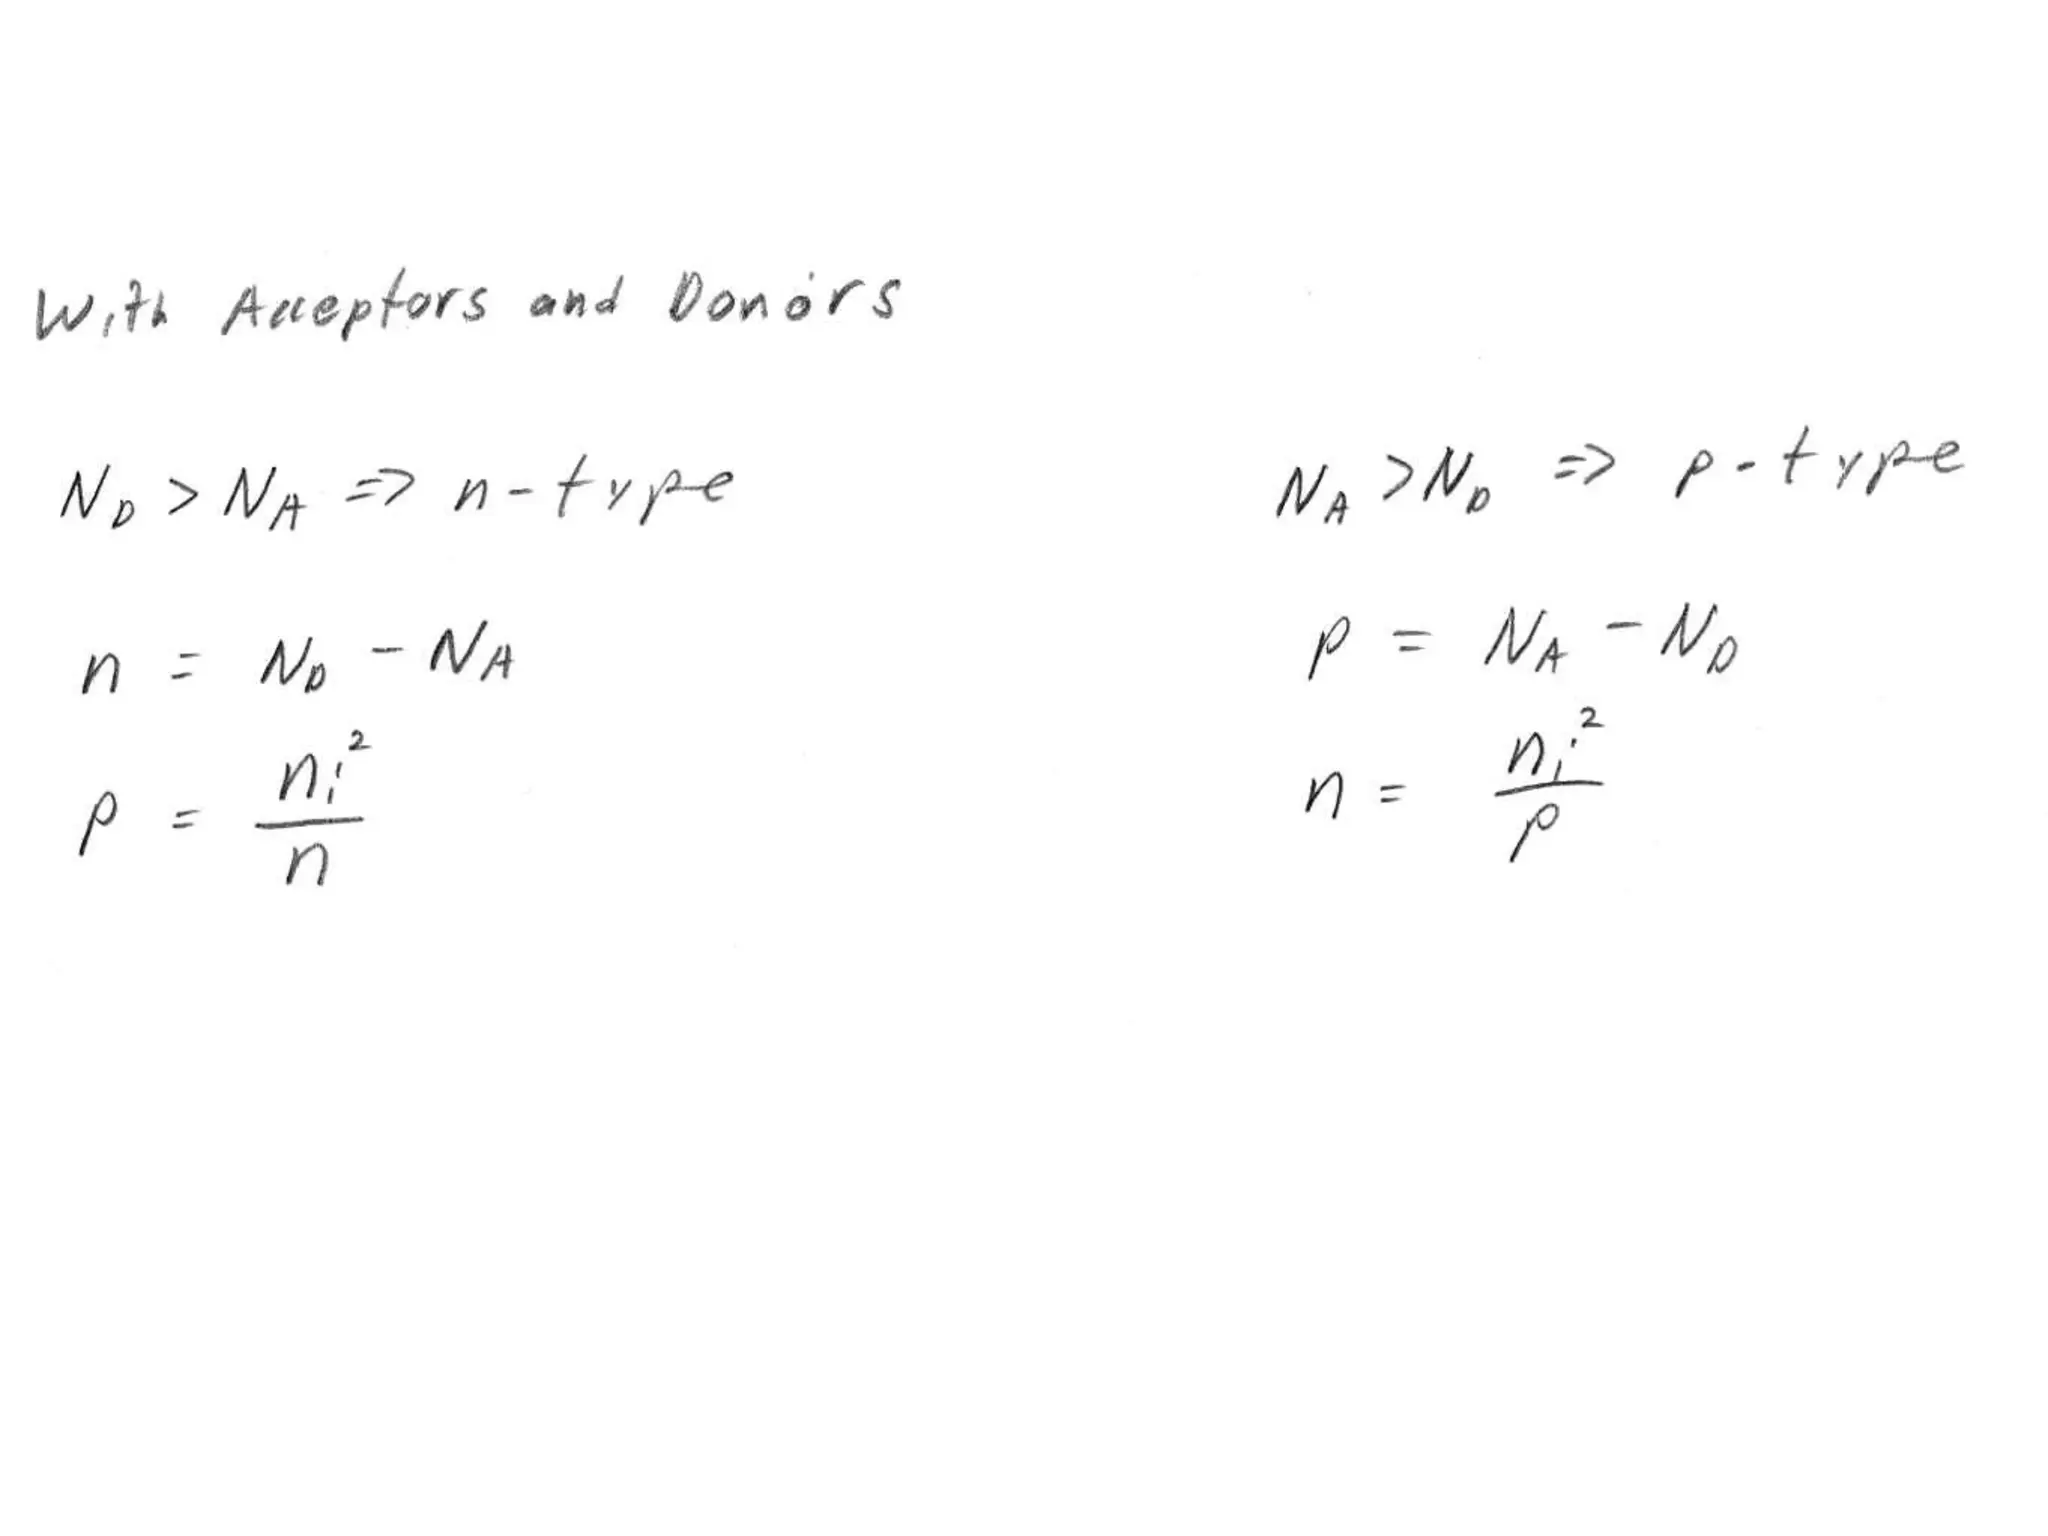 With Acceptors and Donors
N_D > N_A => n-type
n = N_D - N_A
p = n_i^2 / n
N_A > N_D => p-type
p = N_A - N_D
n = n_i^2 / p